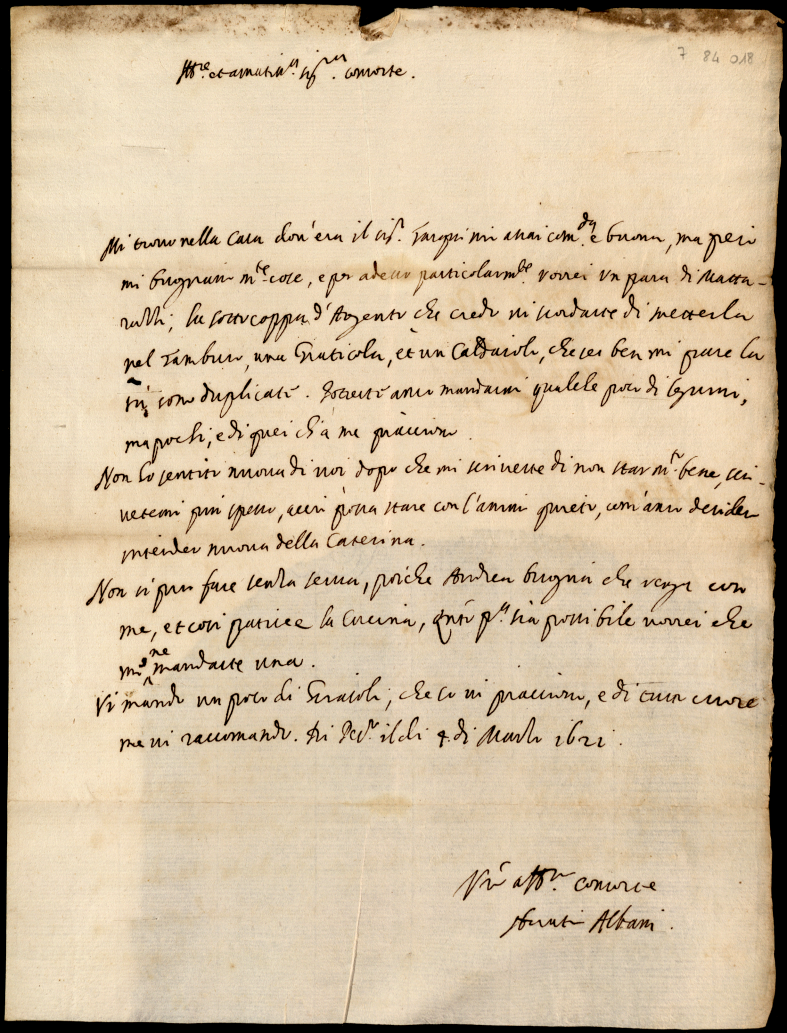 7 84 018
Ill.re et amatiss.a sig.ra consorte.
Mi trovo nella Casa dov'era il sig.r assai com.da e buona, ma però
mi bisognan m.te cose, e per adesso particolarm.te vorrei un paro di Matta-
razzi; la sottocoppa d'Argento che credo vi scordaste di metterla
nel Tamburo, una Graticola, et un Caldarolo, che se ben mi pare la
sù sono duplicati. Potreste anco mandarmi qualche poco di legumi,
ma pochi, e di quei ch'à me piaccion.
Non hò sentito nuova di voi dopo che mi scriveste di non star m.to bene, scri-
vetemi più spesso, acciò possa stare con l'animo quieto, com'anco desidero
intender nuova della Caterina.
Non si può fare senza serva, poiche Andrea bisogna che venga con
me, et così patisce la Cucina, q.nto p.a sia possibile vorrei che
me ne mandaste una.
Vi mando un poco di, che sò vi piacciono, e di tutto cuore
me vi raccomando. Di il di 4 di Marzo 1621.
V.ro aff.mo consorte
Horatio Albani.